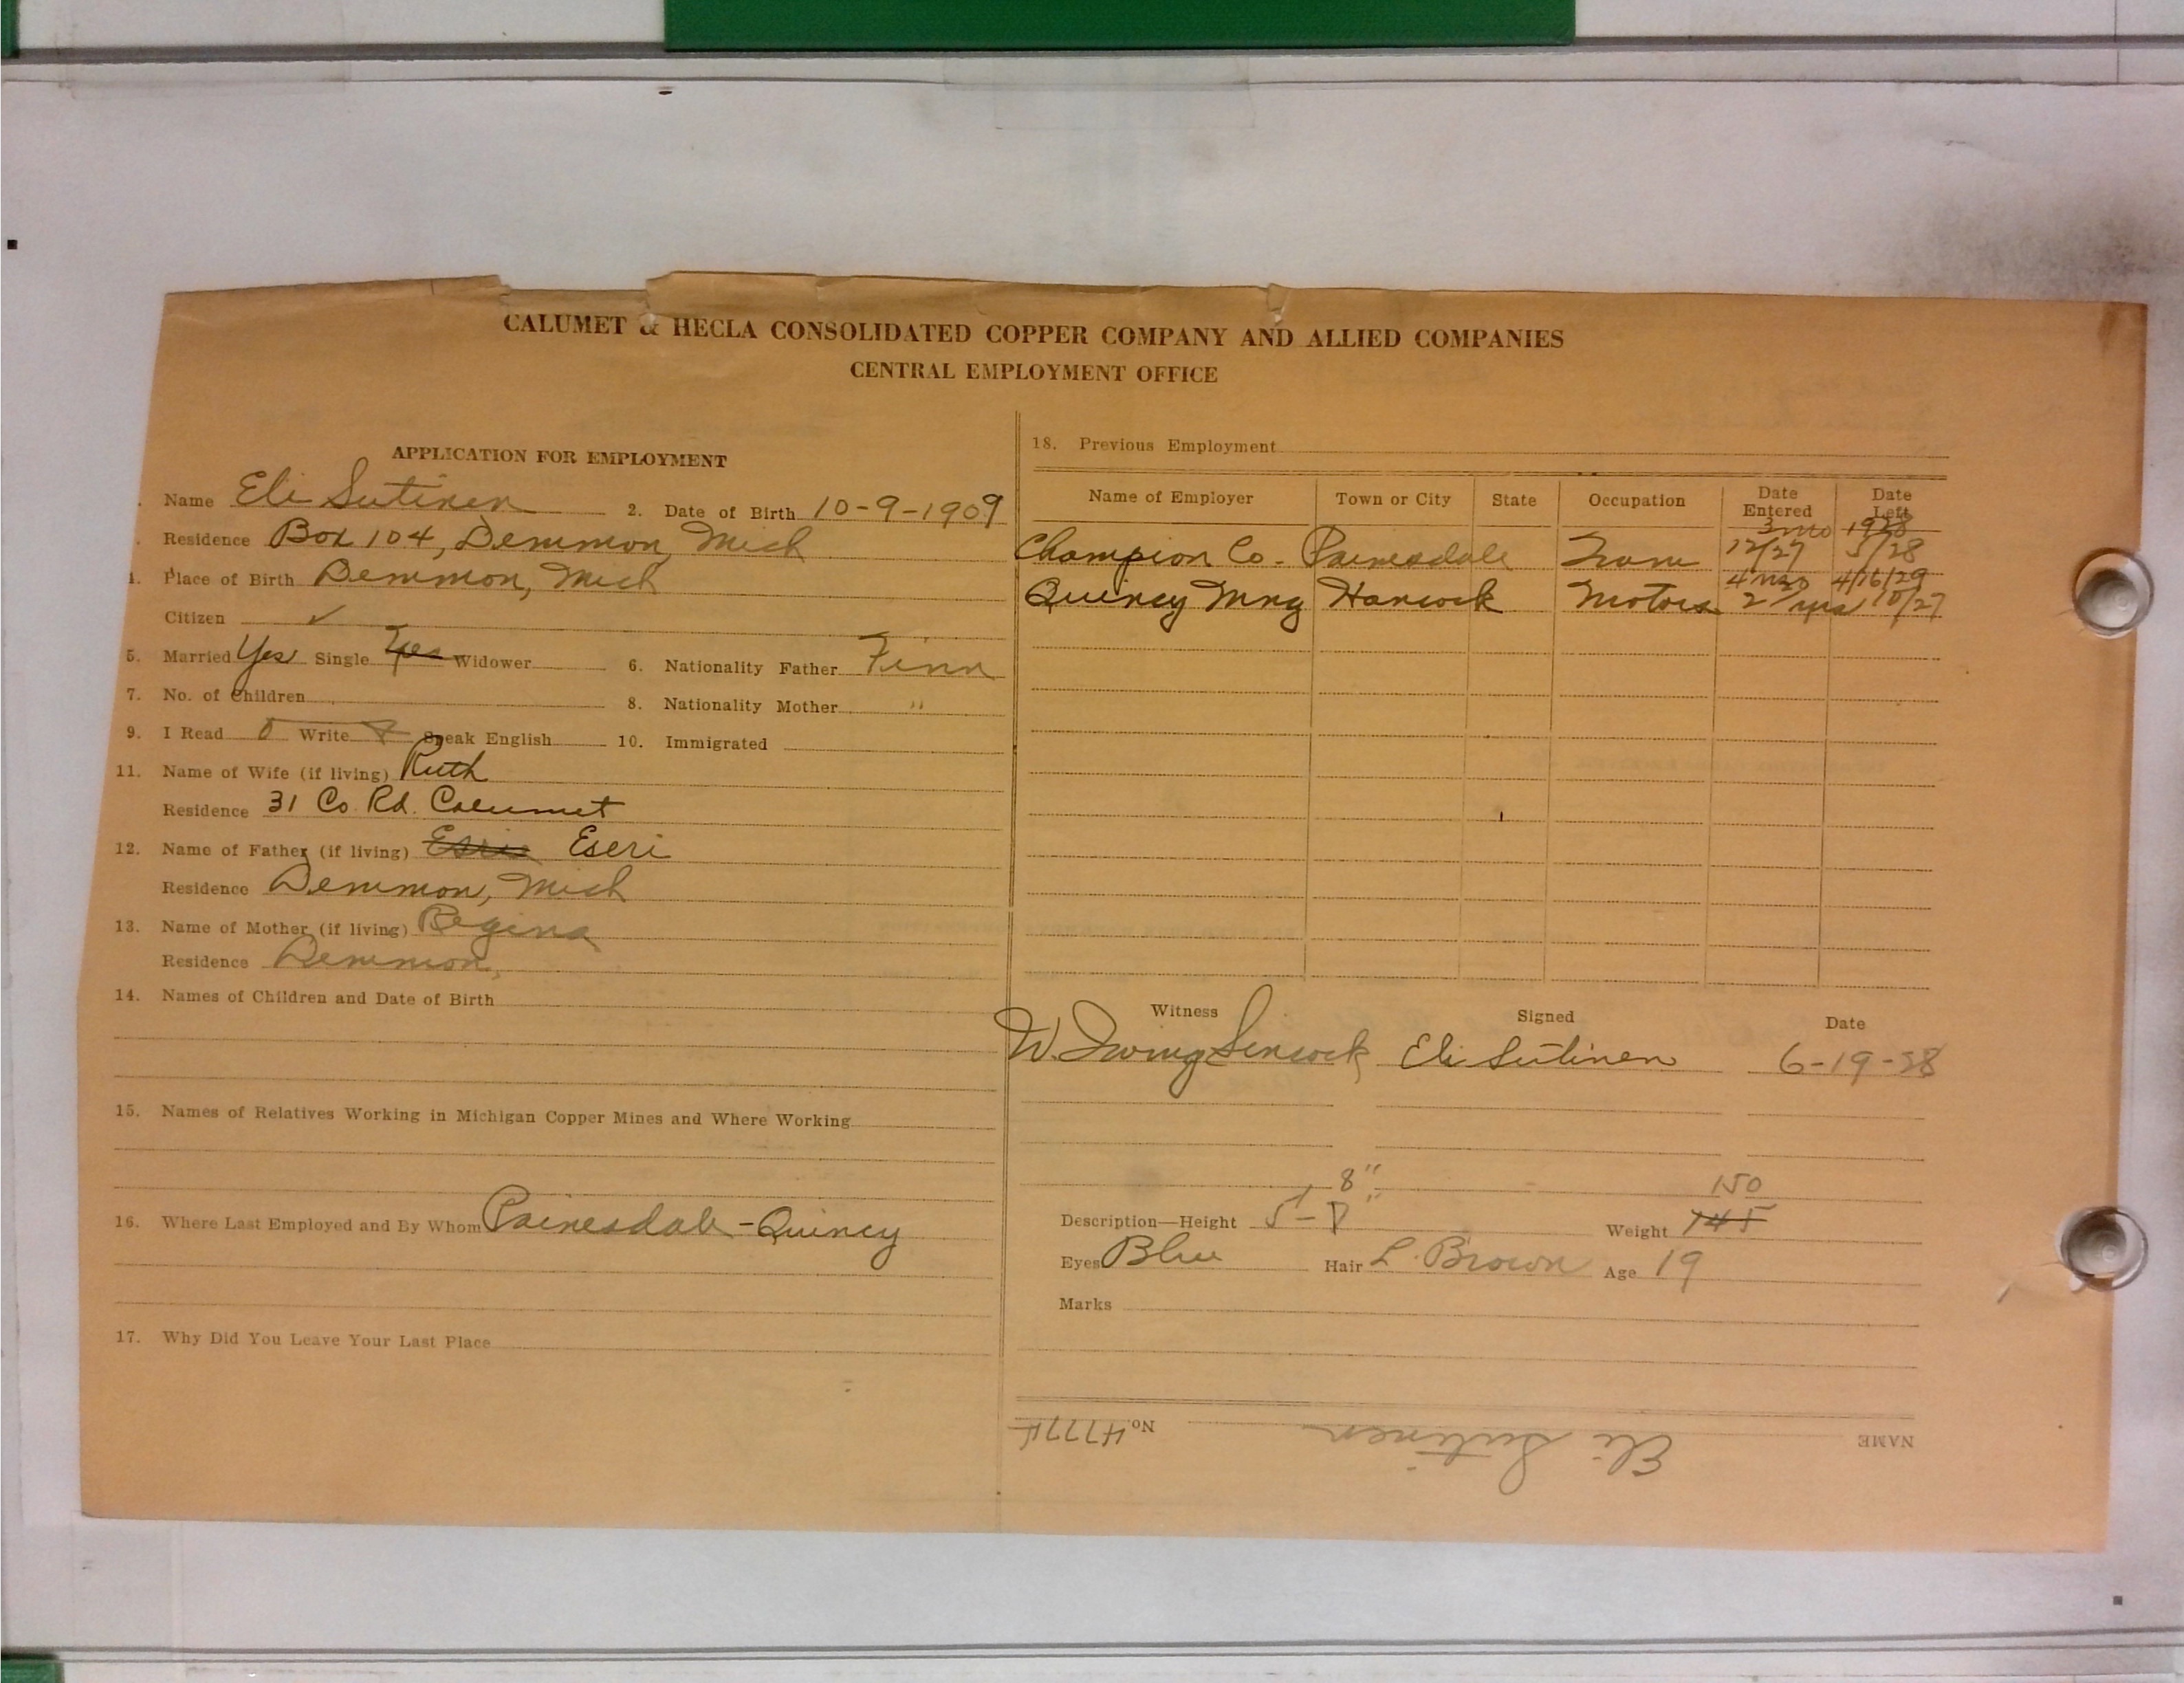 CALUMET & HECLA CONSOLIDATED COPPER COMPANY AND ALLIED COMPANIES
CENTRAL EMPLOYMENT OFFICE
APPLICATION FOR EMPLOYMENT
Name Eli Sutinen 2. Date of Birth 10-9-1909
Residence Box 104, Demmon, Mich
Place of Birth Demmon, Mich
Citizen ✓
5. Married Yes Single Yes Widower 6. Nationality Father Finn
7. No. of Children 8. Nationality Mother "
9. I Read Write Speak English 10. Immigrated
11. Name of Wife (if living) Ruth
Residence 31 Co. Rd. Calumet
12. Name of Father (if living) Eseri
Residence Demmon, Mich
13. Name of Mother (if living) Regina
Residence Demmon,
14. Names of Children and Date of Birth
15. Names of Relatives Working in Michigan Copper Mines and Where Working
16. Where Last Employed and By Whom Painesdale - Quincy
17. Why Did You Leave Your Last Place
18. Previous Employment
Name of Employer Town or City State Occupation Date Entered Date Left
3 mo 1928
Champion Co. Painesdale Tram 12/27 5/28
4 mo 4/16/29
Quincy Mng Hancock Motors 2 yrs 10/27
Witness Signed Date
W. Irving Sincock Eli Sutinen 6-19-28
8" 150
Description—Height 5- Weight 145
Eyes Blue Hair L. Brown Age 19
Marks
NAME Eli Sutinen No.